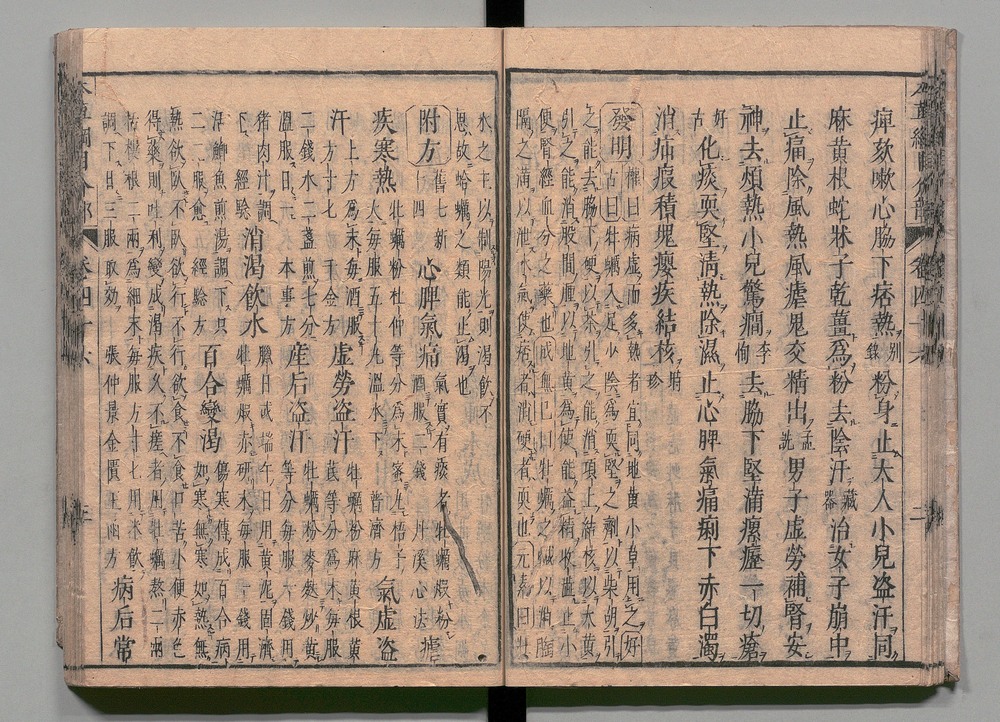 痺欬嗽心脇下痞熱別錄粉身止大人小兒盜汗同
麻黄根蛇牀子乾薑爲粉去陰汗藏器治女子崩中
止痛除風熱風瘧鬼交精出孟詵男子虛勞補腎安
神去煩熱小兒驚癇李珣去脇下堅滿瘰癧一切瘡
好古化痰耎堅淸熱除濕止心脾氣痛痢下赤白濁
消疝瘕積塊癭疾結核時珍
發明權曰病虛而多熱者宜同地黄小草用之好
古曰牡蠣入足少陰爲耎堅之劑以柴胡引
之能去脇下便以茶引之能消項上結核以大黄
引之能消股間腫以地黄爲使能益精收澁止小
便腎經血分之藥也成無已曰牡蠣之鹹以消胸
膈之滿以泄水氣使痞者消硬者耎也元素曰壯
水之主以制陽光則渴飮不
思故蛤蠣之類能止渴也
附方舊七新十四心脾氣痛氣實有痰者牡蠣煅粉
酒服二錢丹溪心法瘧
疾寒熱牡蠣粉杜仲等分爲末蜜丸梧子
大每服五十丸溫水下普濟方氣虛盜
汗上方爲末每酒服
方寸七千金方虛勞盜汗牡蠣粉麻黄根黄
芪等分爲末每服
二錢水二盞煎七分
溫服日一本事方産后盜汗牡蠣粉麥麩炒黄
等分每服一錢用
猪肉汁調
下經驗消渴飮水臘日或端午日用黄泥固濟
牡蠣煅赤研末每服一錢用
活鯽魚煎湯調下只
二三服愈經驗方百合變渴傷寒傳成百合病
如寒無寒如熱無
熱欲臥不臥欲行不行欲食不食口苦小便赤色
得藥則吐利變成渴疾久不瘥者用牡蠣熬二兩
栝樓根二兩爲細末每服方寸七用米飮
調下日三服取効張仲景金匱玉函方病后常
本草綱目介部
卷四十六